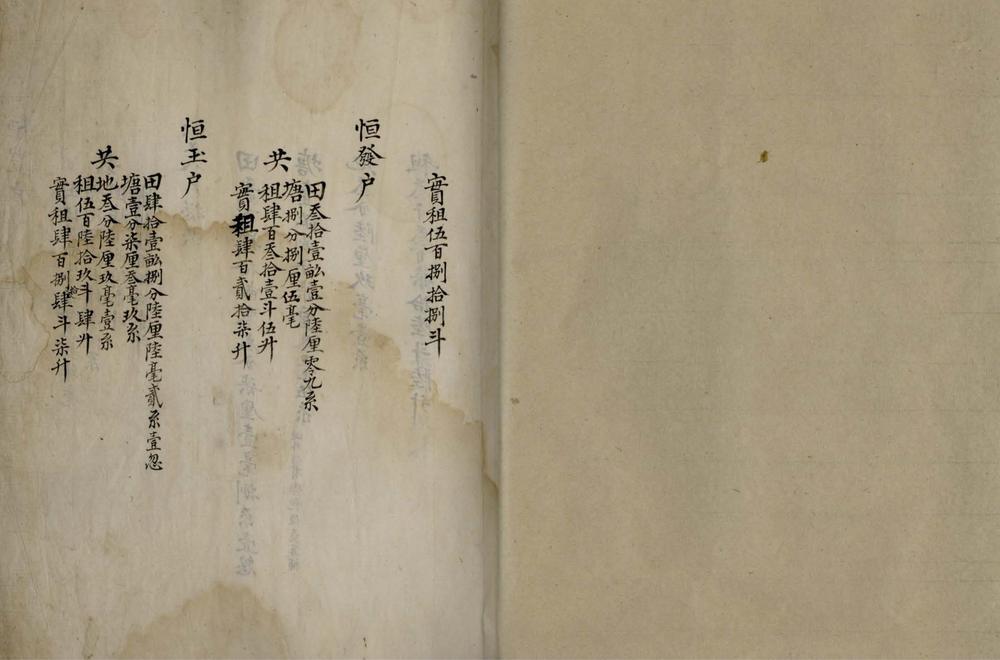 實租伍百捌拾捌斗
恒發户
共
田叁拾壹畝壹分陸厘零九系
塘捌分捌厘伍毫
租肆百叁拾壹斗伍升
實租肆百貳拾柒升
恒玉户
共
田肆拾壹畝捌分陸厘陸毫貳系壹忽
塘壹分柒厘叁毫玖系
地叁分陸厘玖毫壹系
租伍百陸拾玖斗肆升
實租肆百捌拾肆斗柒升